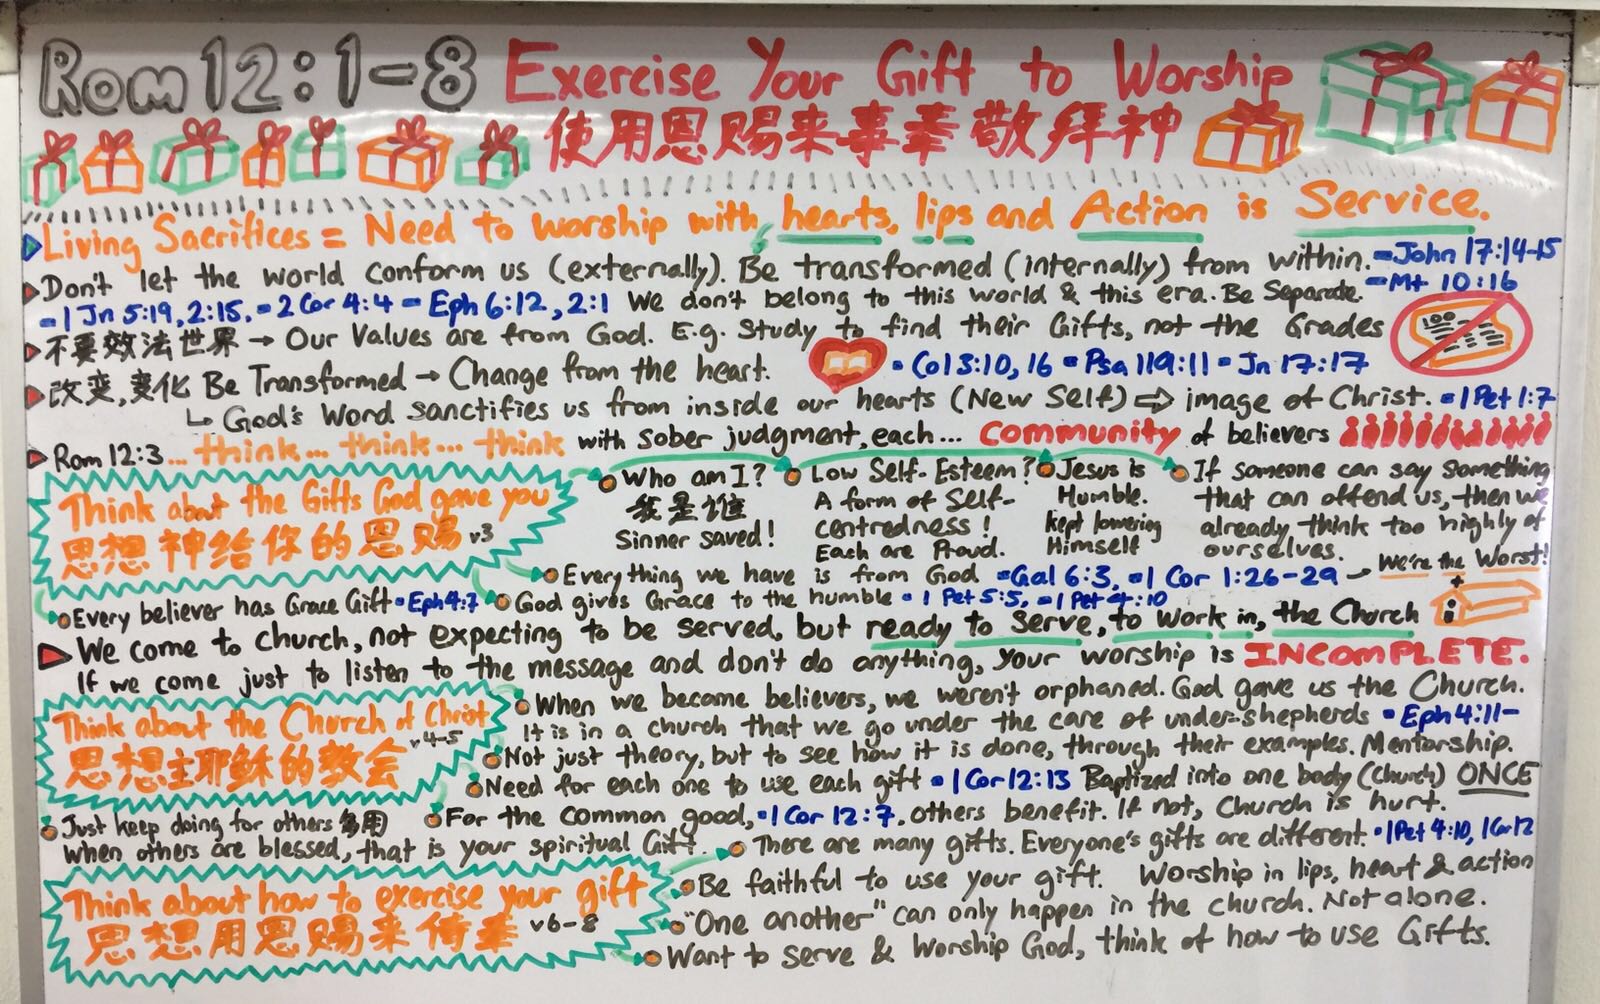 Rom 12:1-8 Exercise Your Gift to Worship
使用恩赐来事奉敬拜神
Living Sacrifices = Need to worship with hearts, lips and Action is Service.
Don't let the world conform us (externally). Be transformed (internally) from within. =John 17:14-15
=1 Jn 5:19, 2:15, =2 Cor 4:4 = Eph 6:12, 2:1 We don't belong to this world & this era. Be Separate. =Mt 10:16
不要效法世界 → Our Values are from God. E.g. Study to find their Gifts, not the Grades
100
改变,变化 Be Transformed → Change from the heart. =Col 3:10, 16 =Psa 119:11 =Jn 17:17
↳ God's Word sanctifies us from inside our hearts (New Self) ⇨ image of Christ. =1 Pet 1:7
Rom 12:3... think... think... think with sober judgment, each... Community of believers
Think about the Gifts God gave you
思想神给你的恩赐 v3
Who am I?
我是谁
Sinner saved!
Low Self-Esteem?
A form of Self-
centredness!
Each are Proud.
Jesus is
Humble.
kept lowering
Himself
If someone can say something
that can offend us, then we
already think too highly of
ourselves.
We're the Worst!
Everything we have is from God =Gal 6:3, =1 Cor 1:26-29 →
Every believer has Grace Gift =Eph 4:7
God gives Grace to the humble = 1 Pet 5:5, =1 Pet 4:10
We come to church, not expecting to be served, but ready to serve, to work in, the Church
If we come just to listen to the message and don't do anything, your worship is INCOMPLETE.
Think about the Church of Christ
思想主耶稣的教会 v4-5
When we became believers, we weren't orphaned. God gave us the Church.
It is in a church that we go under the care of under-shepherds =Eph 4:11-
Not just theory, but to see how it is done, through their examples. Mentorship.
Need for each one to use each gift =1 Cor 12:13 Baptized into one body (church) ONCE
For the common good, =1 Cor 12:7, others benefit. If not, Church is hurt.
Just keep doing for others 多用
When others are blessed, that is your spiritual Gift.
There are many gifts. Everyone's gifts are different. =1 Pet 4:10, 1 Cor 12
Think about how to exercise your gift
思想用恩赐来侍奉 v6-8
Be faithful to use your gift. Worship in lips, heart & action
"One another" can only happen in the church. Not alone.
Want to serve & Worship God, think of how to use Gifts.